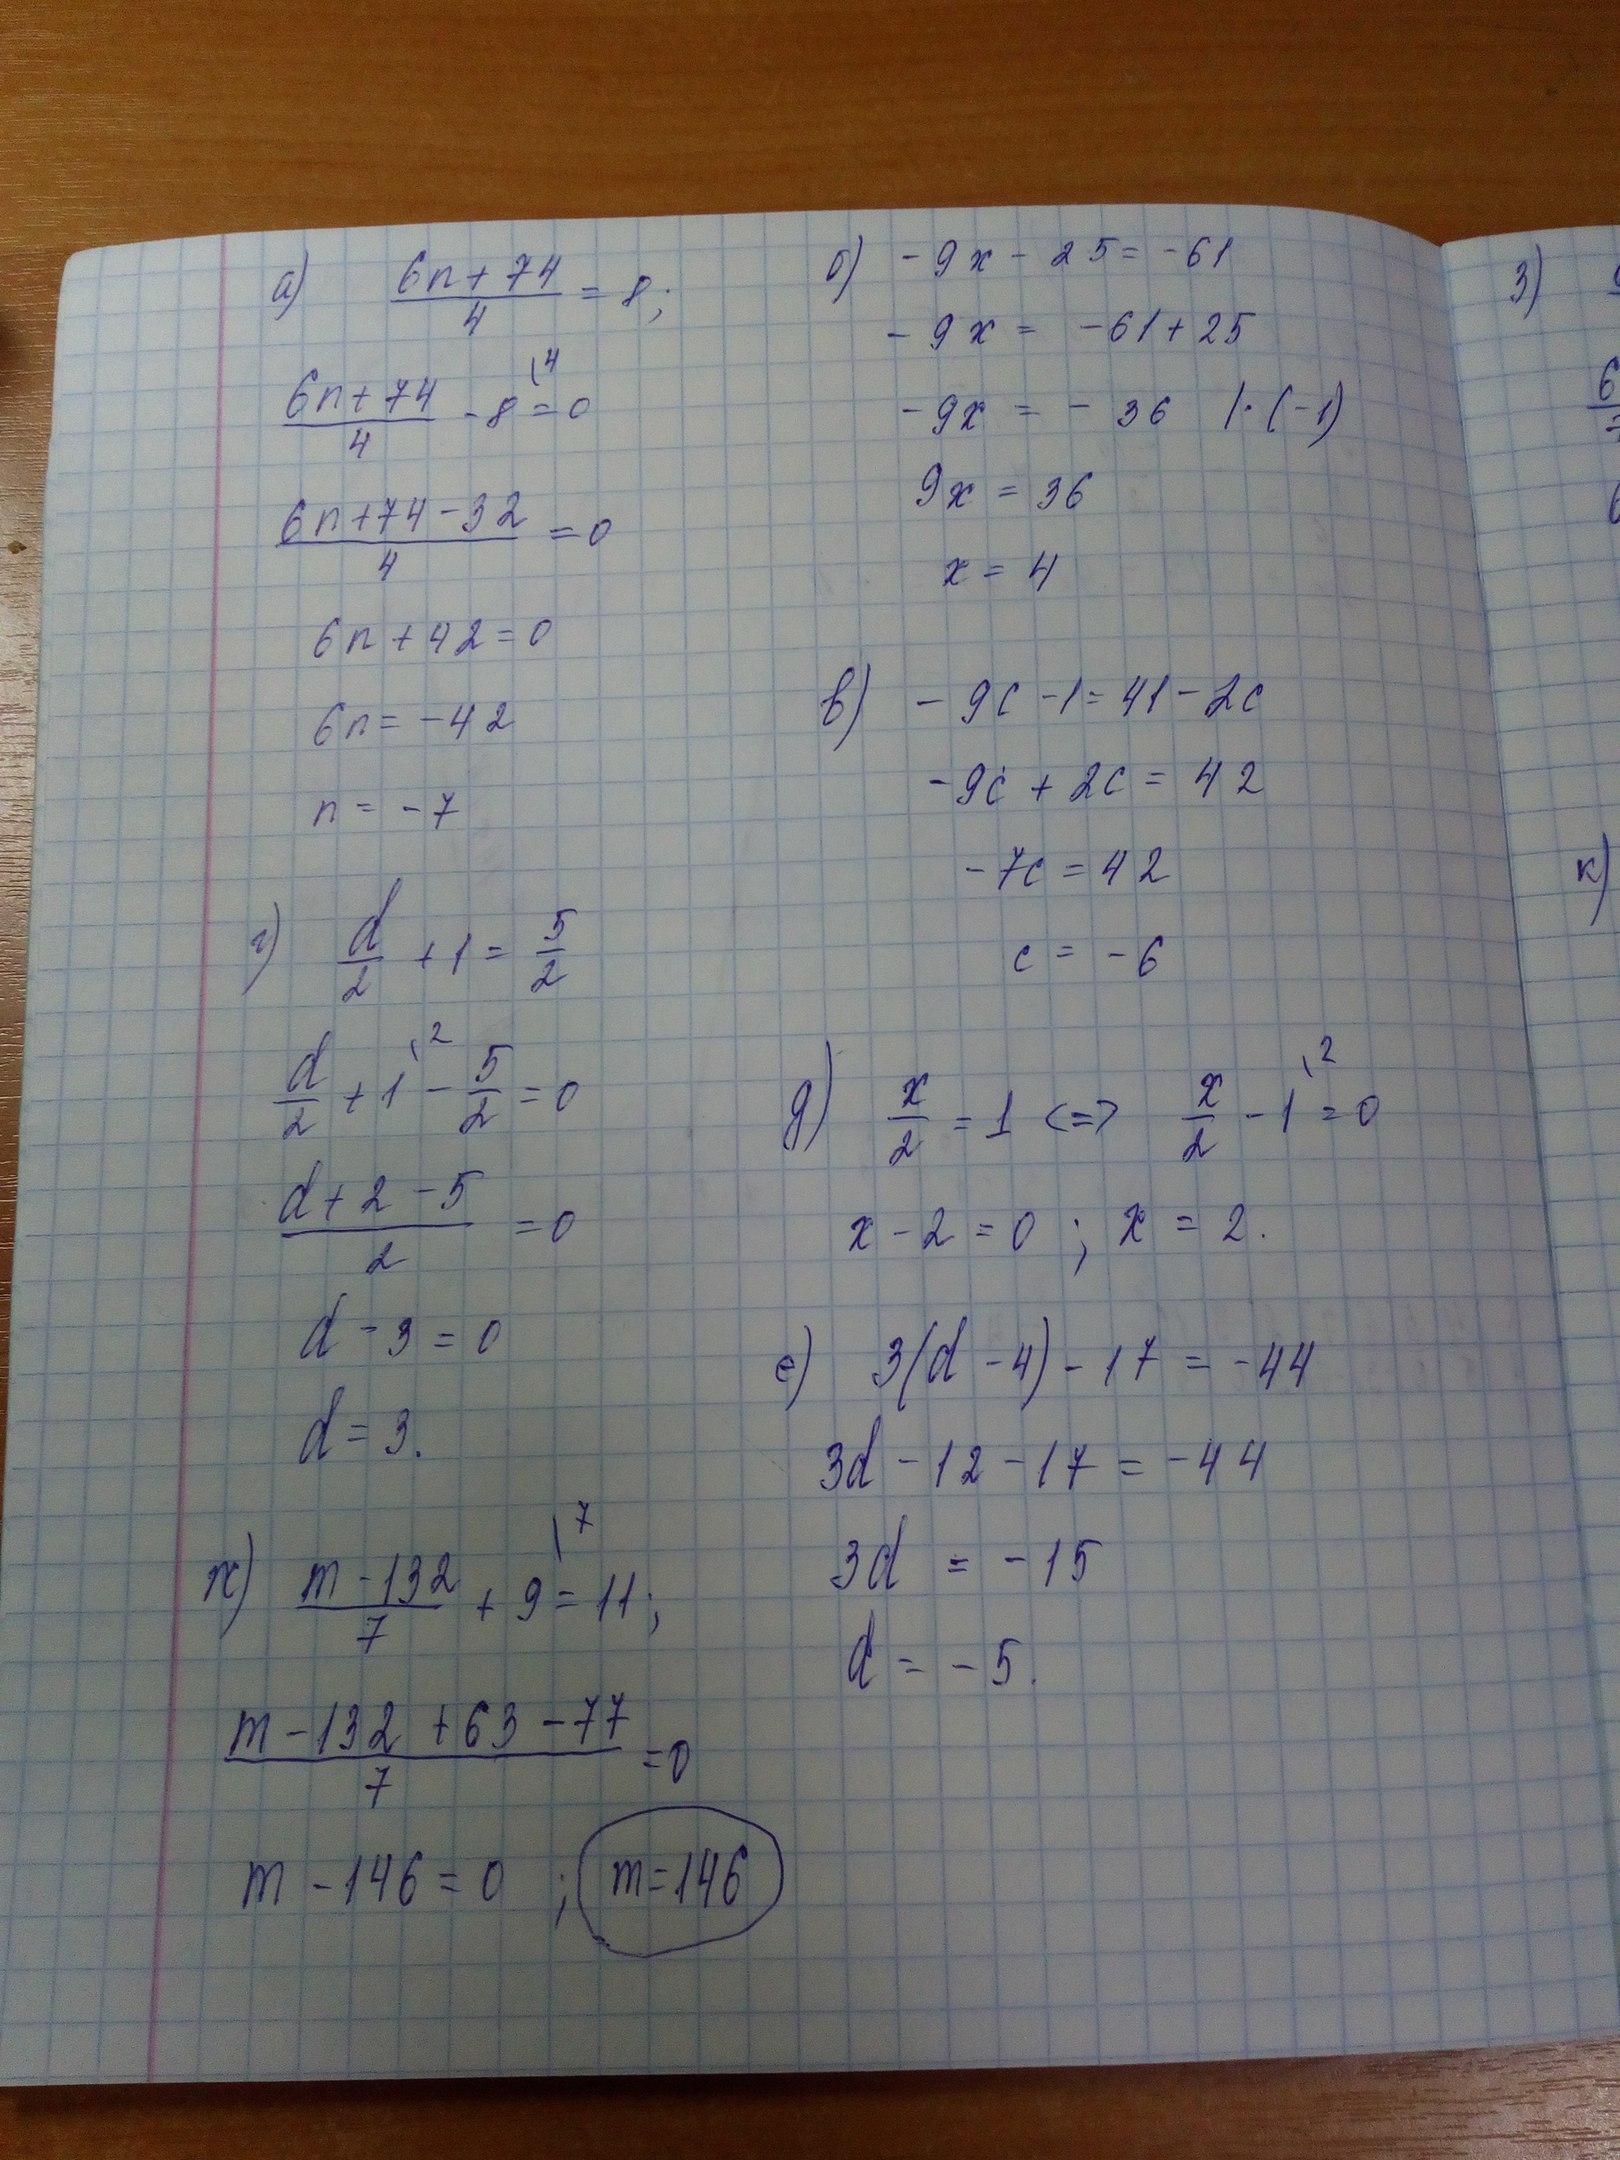 а) (6n + 74)/4 = 8;
(6n + 74)/4 - 8\4 = 0
(6n + 74 - 32)/4 = 0
6n + 42 = 0
6n = -42
n = -7
б) -9x - 25 = -61
-9x = -61 + 25
-9x = -36 |·(-1)
9x = 36
x = 4
в) -9c - 1 = 41 - 2c
-9c + 2c = 42
-7c = 42
c = -6
г) d/2 + 1 = 5/2
d/2 + 1\2 - 5/2 = 0
(d + 2 - 5)/2 = 0
d - 3 = 0
d = 3.
д) x/2 = 1 <=> x/2 - 1\2 = 0
x - 2 = 0 ; x = 2.
е) 3(d - 4) - 17 = -44
3d - 12 - 17 = -44
3d = -15
d = -5.
ж) (m - 132)/7 + 9\7 = 11;
(m - 132 + 63 - 77)/7 = 0
m - 146 = 0 ; m = 146
з)
6
7
к)